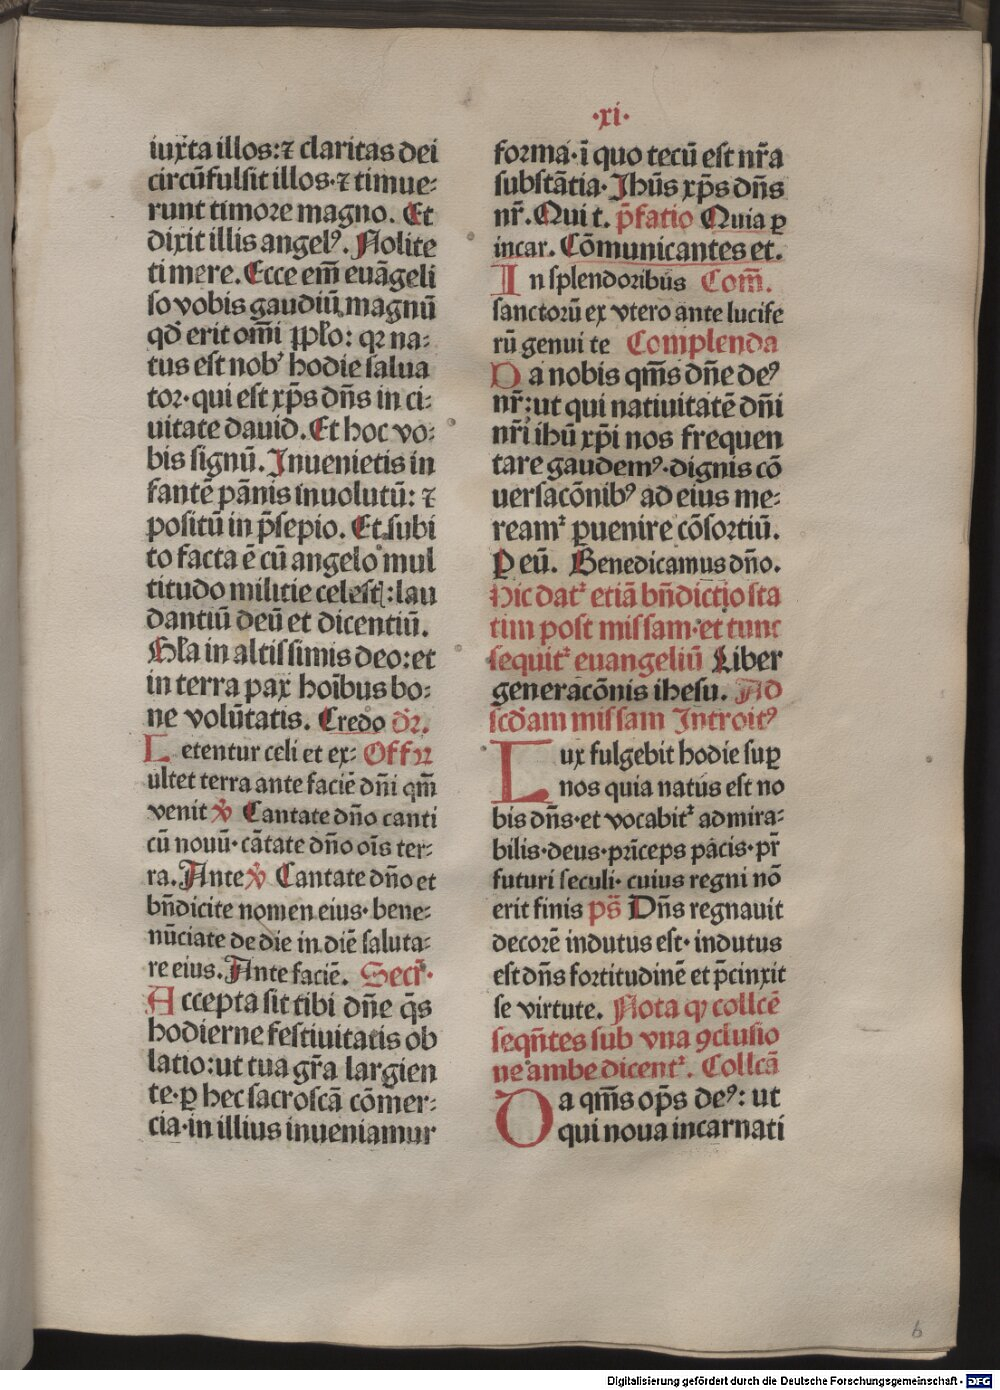 ·xi·
iuxta illos: ⁊ claritas dei
circūfulsit illos· ⁊ timue⸗
runt timore magno. Et
dixit illis angelꝰ. Nolite
timere. Ecce em̄ euāgeli
so vobis gaudiū magnū
qd̄ erit om̄i ꝓpl̄o: qꝛ na⸗
tus est nobꝭ hodie salua
tor· qui est xp̄s dn̄s in ci⸗
uitate dauid. Et hoc vo⸗
bis signū. Inuenietis in
fantē pānis inuolutū: ⁊
positū in p̄sepio. Et subi
to facta ē cū angelo mul
titudo militie celest: lau
dantiū deū et dicentiū.
Gl̄a in altissimis deo: et
in terra pax hoībus bo⸗
ne volūtatis. Credo dr̄.
Letentur celi et ex⸗ Offꝛ
ultet terra ante faciē dn̄i qm̄
venit v̄ Cantate dn̄o canti
cū nouū· cātate dn̄o oīs ter⸗
ra. Ante v̄ Cantate dn̄o et
bn̄dicite nomen eius· bene⸗
nūciate de die in diē saluta⸗
re eius. Ante faciē. Secr̄.
Accepta sit tibi dn̄e q̄s
hodierne festiuitatis ob
latio: ut tua gr̄a largien
te· ꝑ hec sacroscā cōmer⸗
cia· in illius inueniamur
forma· ī quo tecū est nr̄a
substātia· Jhūs xp̄s dn̄s
nr̄. Qui t. p̄fatio Quia ꝑ
incar. Cōmunicantes et.
In splendoribus Com̄.
sanctorū ex vtero ante lucife
rū genui te Complenda
Da nobis qm̄s dn̄e deꝰ
nr̄: ut qui natiuitatē dn̄i
nr̄i ihū xp̄i nos frequen
tare gaudemꝰ· dignis cō
uersacōnibꝰ ad eius me⸗
reamꝛ ꝑuenire cōsortiū.
P eū. Benedicamus dn̄o.
Hic datꝛ etiā bn̄dictio sta
tim post missam· et tunc
sequitꝛ euangeliū Liber
generacōnis ihesu. Ad
scd̄am missam Introitꝰ
Lux fulgebit hodie suꝑ
nos quia natus est no
bis dn̄s· et vocabitꝛ admira⸗
bilis· deus· prīceps pacis· pr̄
futuri seculi· cuius regni nō
erit finis ps̄ Dn̄s regnauit
decorē indutus est· indutus
est dn̄s fortitudinē et p̄cinxit
se virtute. Nota ꝙ collcē
seqn̄tes sub vna ꝯclusio
ne ambe dicentꝛ. Collcā
Da qm̄s op̄s deꝰ: ut
qui noua incarnati
6
Digitalisierung gefördert durch die Deutsche Forschungsgemeinschaft - DFG